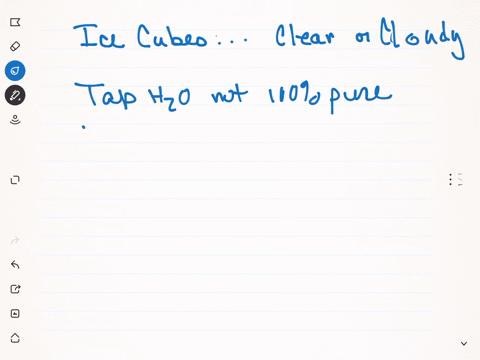 Ice Cubes... Clear or Cloudy
Tap H₂O not 100% pure